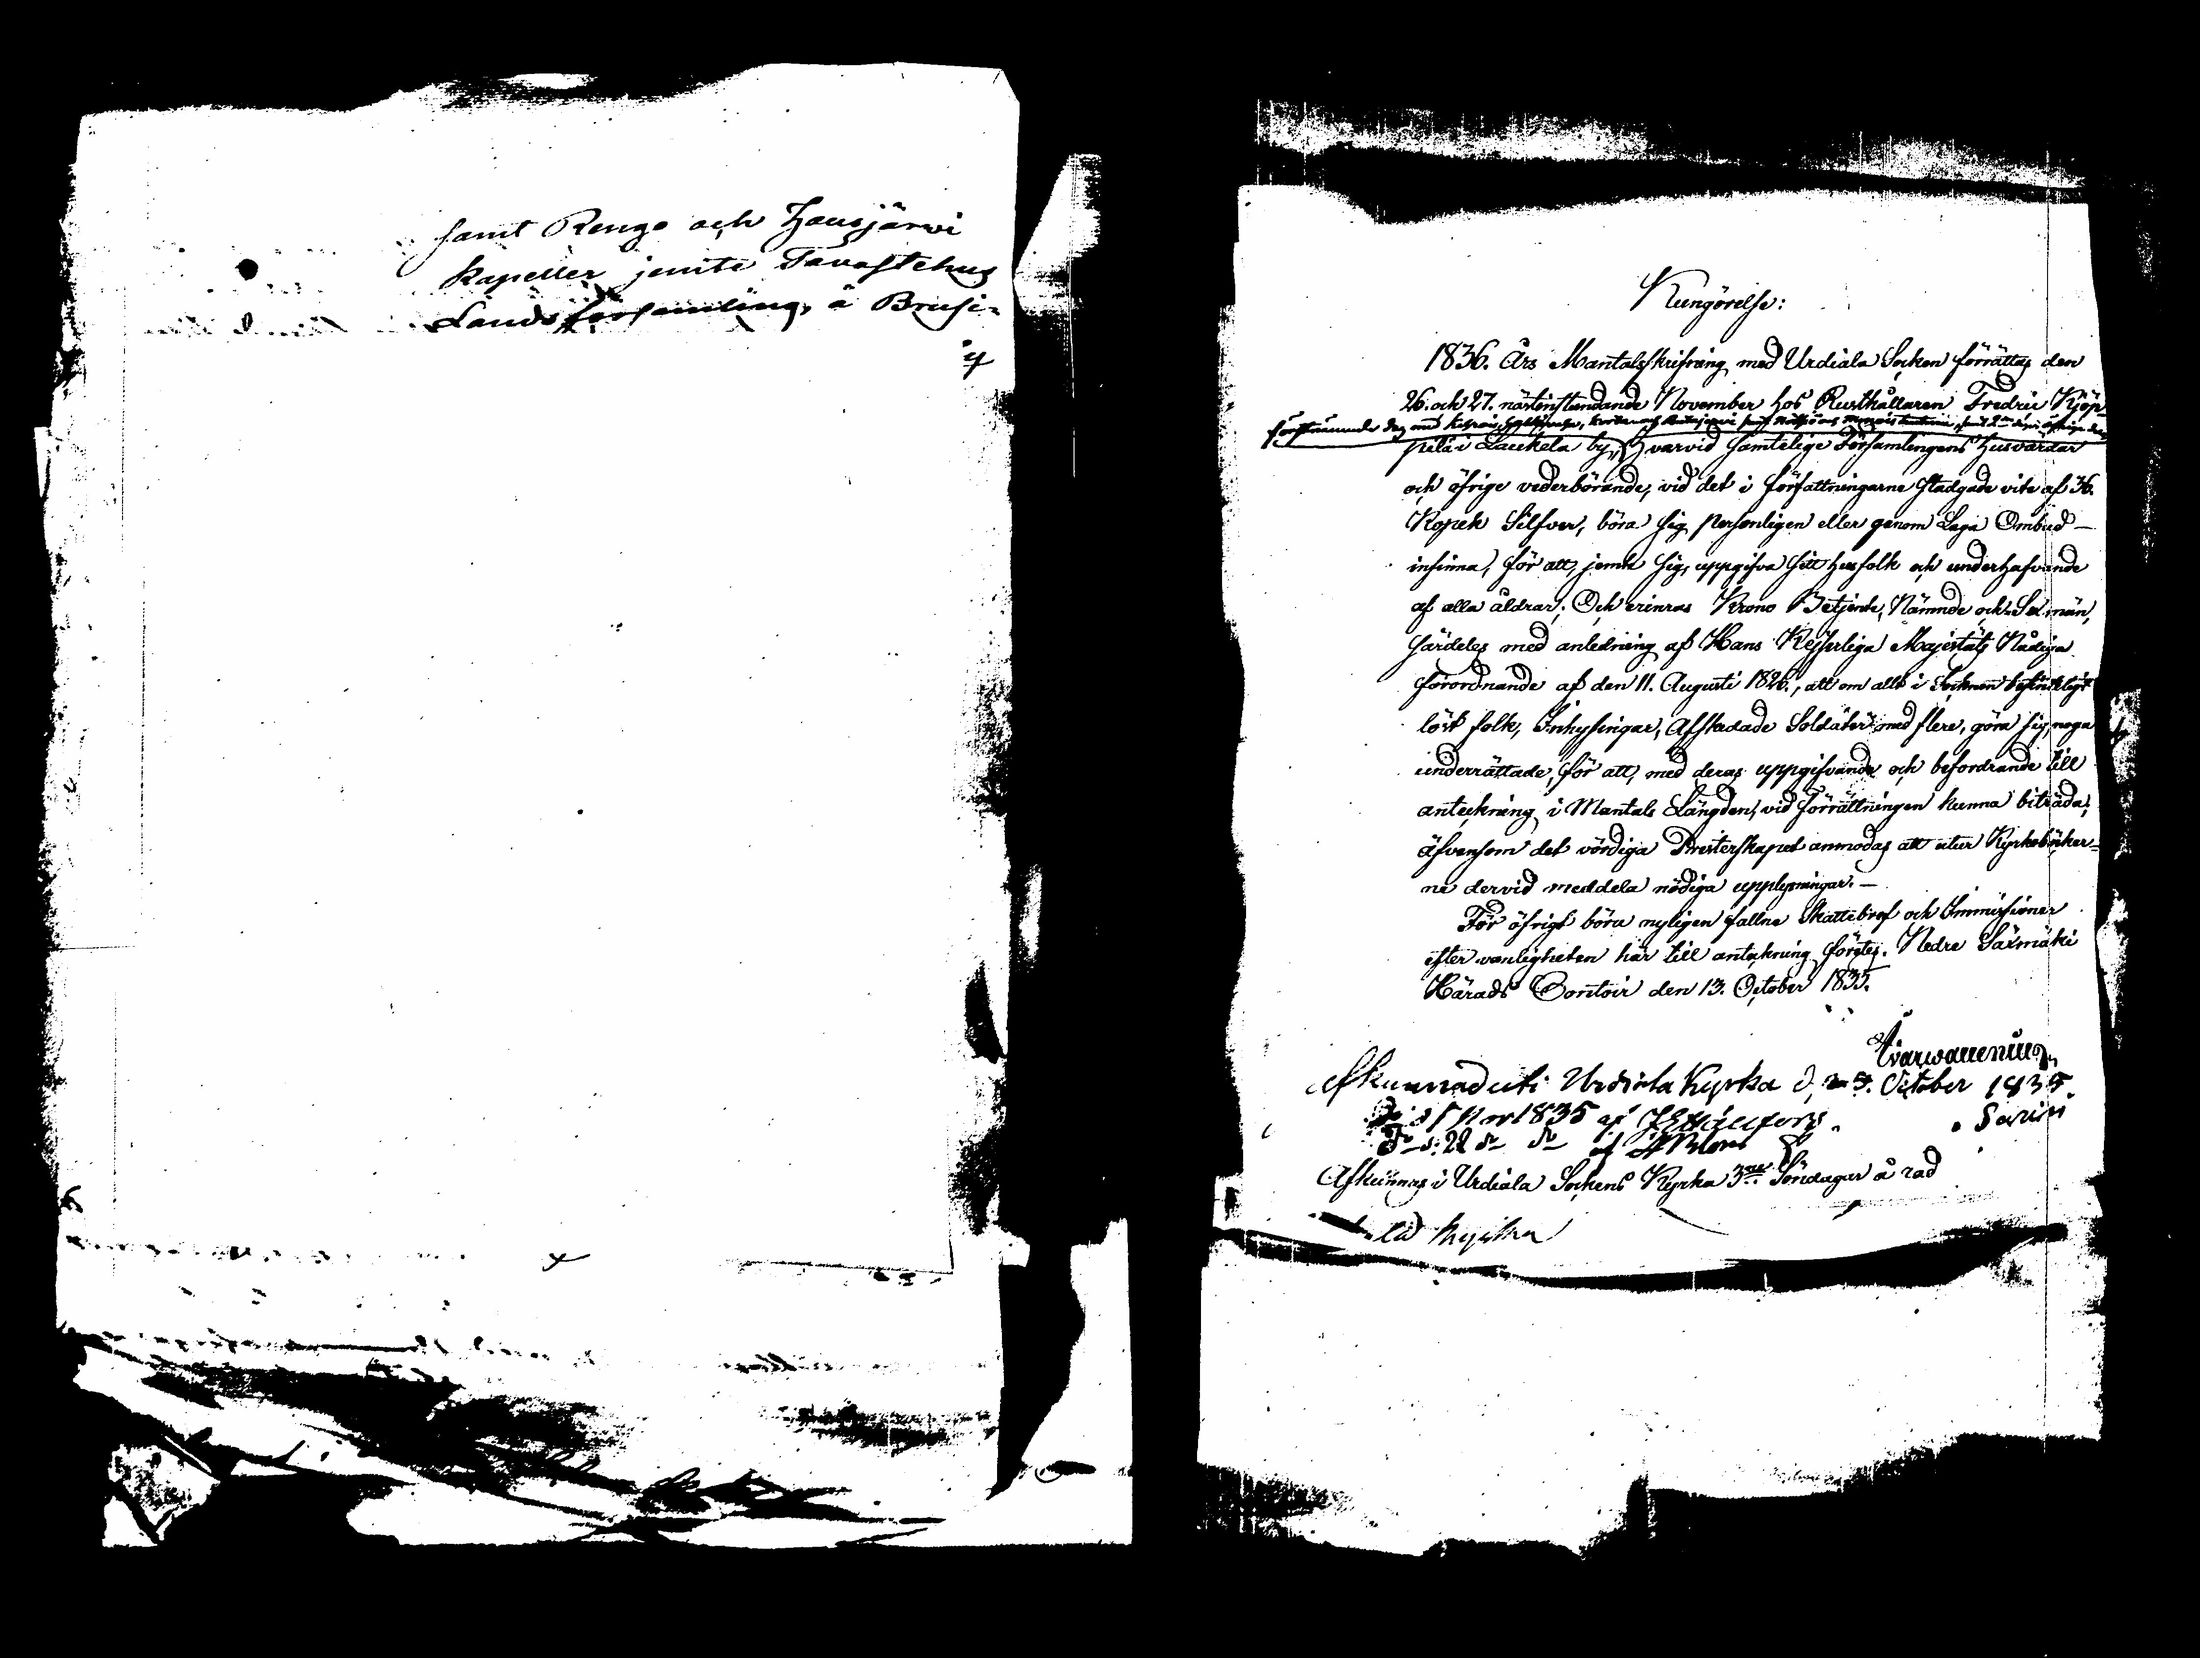 samt Rengo och Hausjärvi
Kapeller jemte Tavastehus
Landsförsamling, å Brusi-
Kungörelse:
1836. Års Mantalsskrifning med Urdiala Socken förrättas den
26. och 27. nästinstundande November hos Rusthållaren Fredric Kjöp-
pilä i Laukela by, hvarvid samtelige Församlingens husvärdar
och öfrige vederbörande, vid det i författningarne stadgade vite af 36.
Kopek Silfver, böra sig personligen eller genom Laga Ombud
infinna, för att, jemte sig, uppgifva sitt husfolk och underhafvande
af alla åldrar; Och erinras Krono Betjente, Nämnde och Sexmän,
särdeles med anledning af Hans Kejserliga Majestäts Nådiga
förordnande af den 11. Augusti 1826., att om allt i Socknen befinteligt
löst folk, Inhysingar, Afskedade Soldater med flere, göra sig noga
underrättade, för att, med deras uppgifvande och befordrande till
anteckning i Mantals Längden, vid Förrättningen kunna biträda,
äfvensom det vördiga Presterskapet anmodas att utur Kyrkoböcker-
ne dervid meddela nödiga upplysningar.—
För öfrigt böra nyligen fallne Skattebref och Immissioner
efter vanligheten här till anteckning företes. Nedre Saxmäki
Härads Contoir den 13. October 1835.
Afkunnad uti Urdiala Kyrka d, 25. October 1835.
Afkunnas i Urdiala Sockens Kyrka 3ne Söndagar å rad
Kyrka